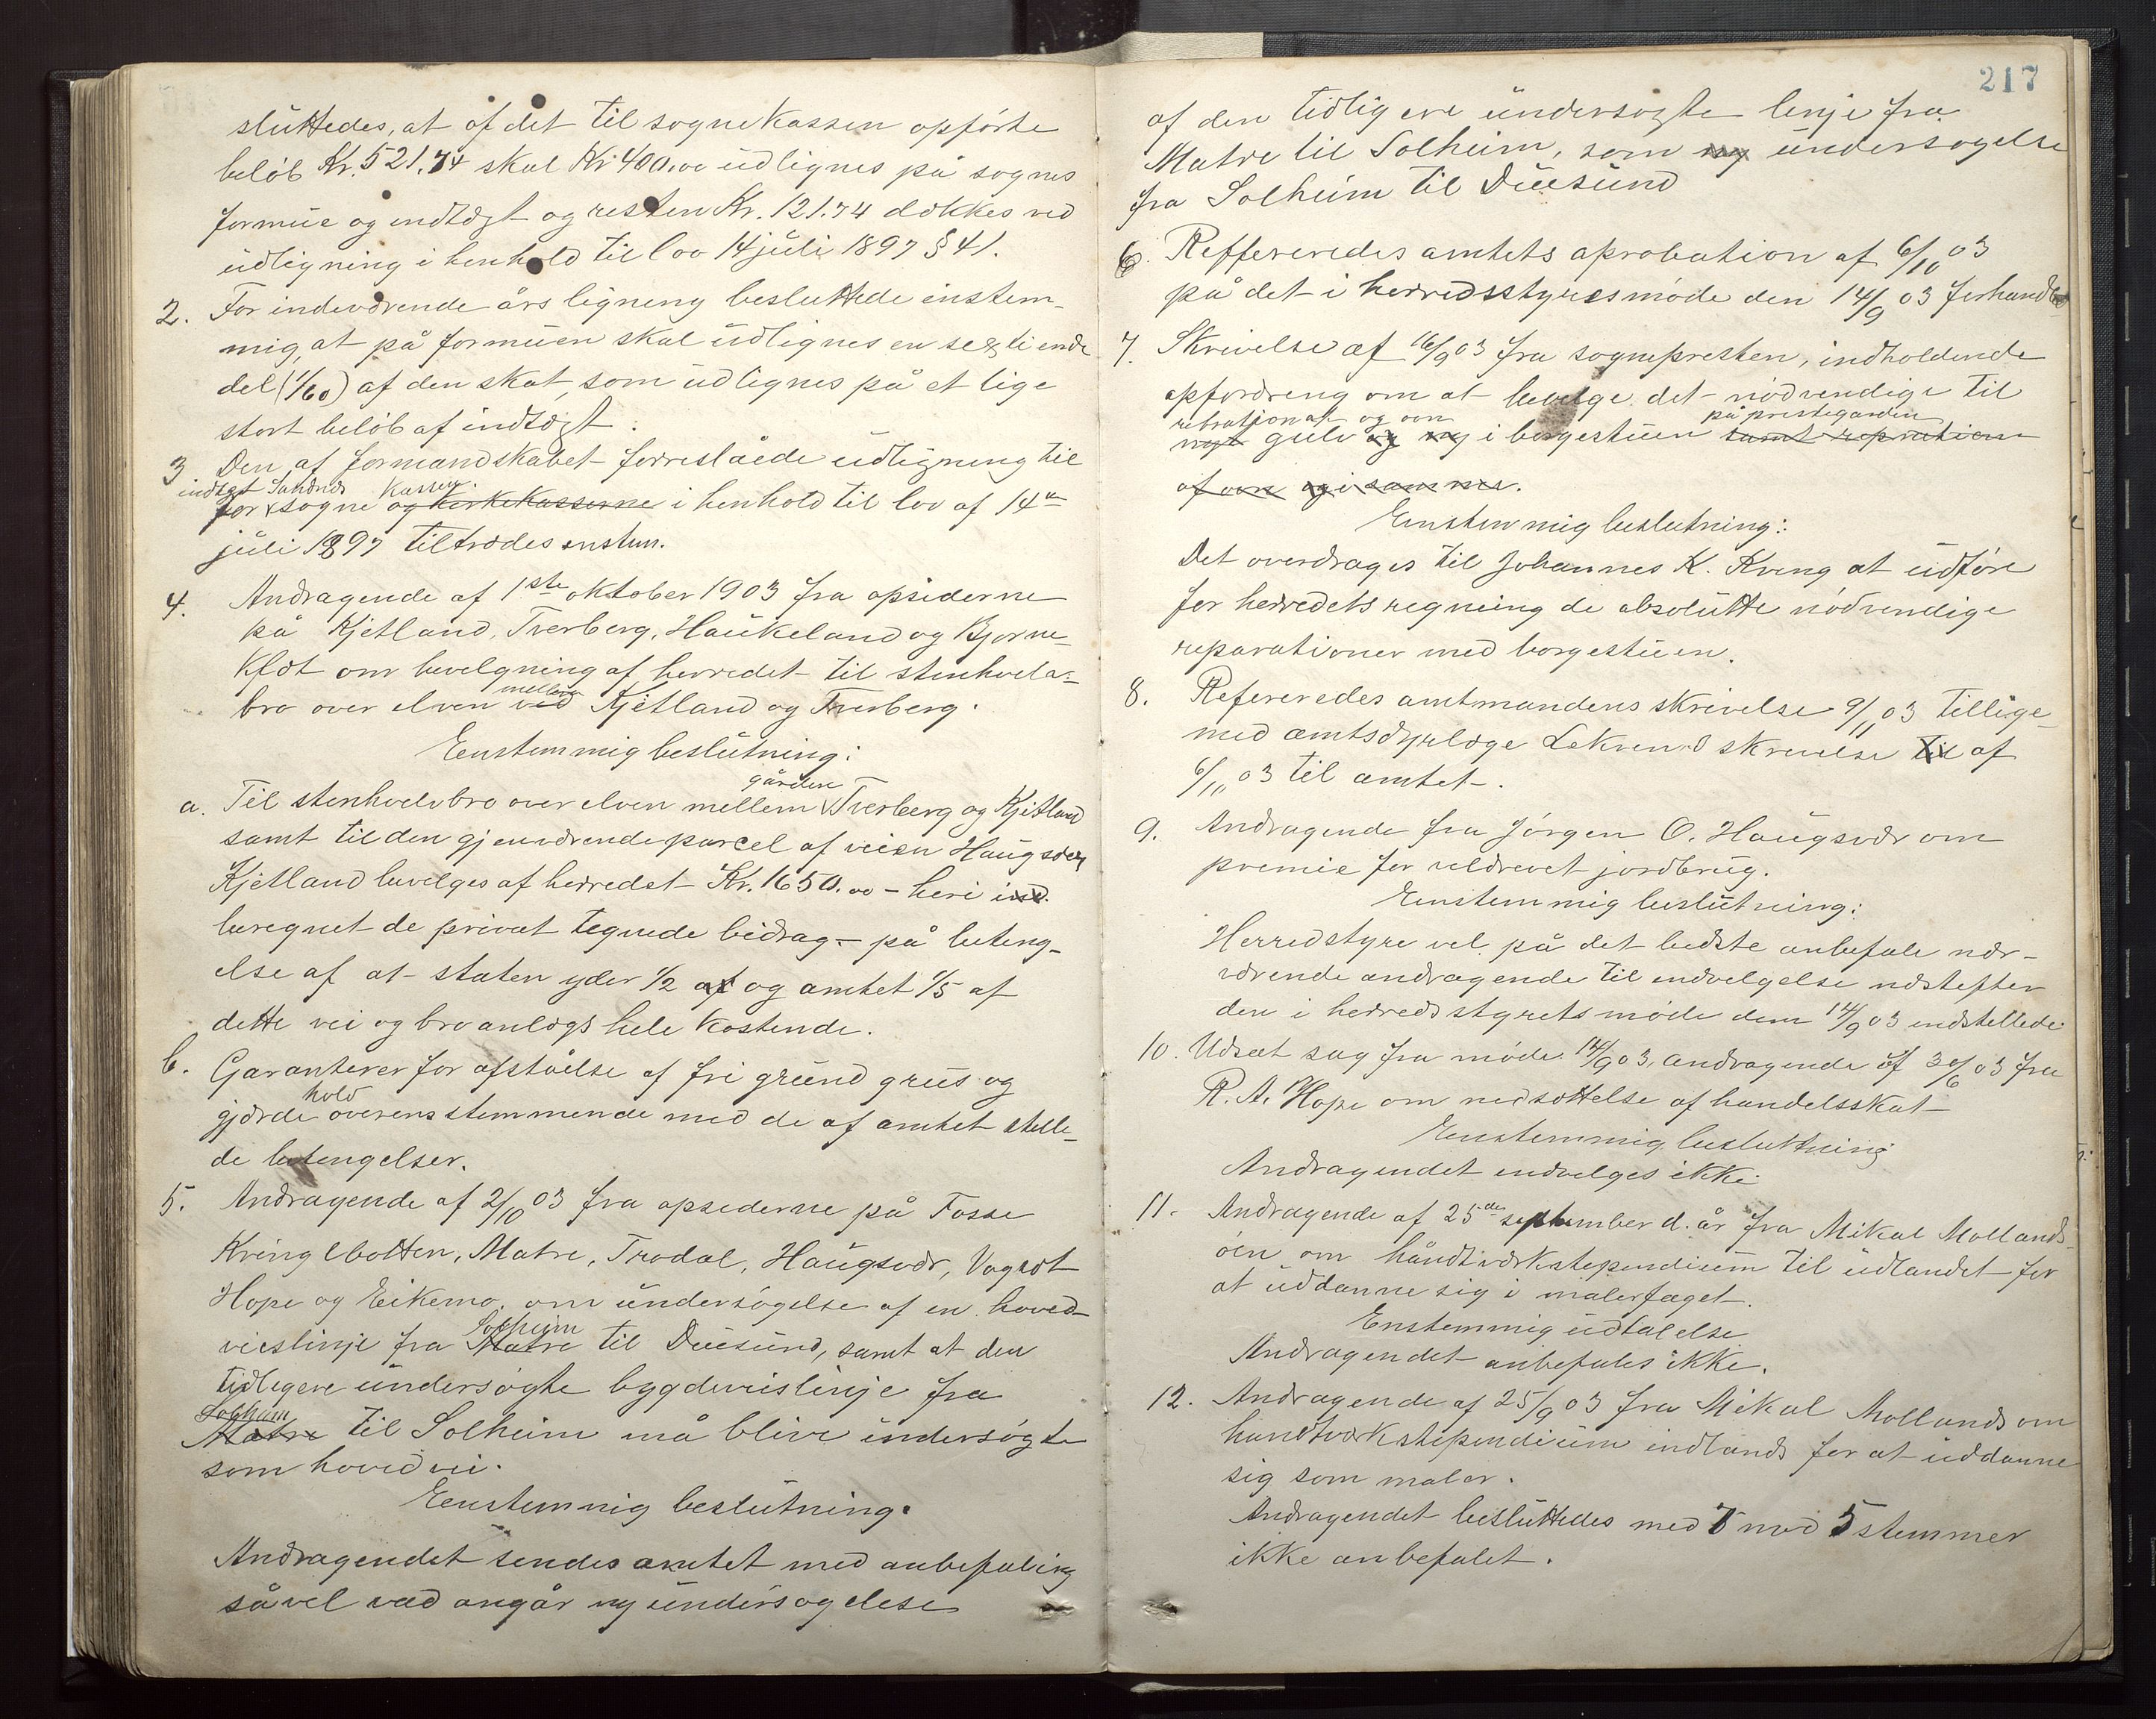 sluttedes, at af det til sognekassen opførte
beløb Kr. 521.74 skal Kr 400.00 udlignes på sognes
formue og indtægt og resten Kr. 121.74 dækkes ved
udligning i henhold til lov 14 juli 1897 § 41.
2. For indeværende års ligning besluttede enstem-
mig, at på formuen skal udlignes en sextiende
del (1/60) af den skat, som udlignes på et lige
stort beløb af indtægt.
3 Den af formandskabet forreslåede udligning til
indtægt Sandnes Kassen.
for sogne og kirkekasserne i henhold til lov af 14de
juli 1897 tiltrædes enstem.
4. Andragende af 1ste oktober 1903 fra opsiderne
på Kjetland, Tverberg, Haukeland og Bjørne-
kløt om bevilgning af herredet til stenhvelv-
mellem
bro over elven ved Kjetland og Tverberg.
Eenstemmig beslutning:
gården
a. Til stenhvelvbro over elven mellem Tverberg og Kjetland
samt til den gjenværende parcel af veien Haugsvær
Kjetland bevilges af herredet Kr. 1650.00 – heri ind.
beregnet de privat tegnede bidrag – på beting-
else af at staten yder 1/2 af og amtet 1/5 af
dette vei og broanlægs hele kostende.
b. Garanterer for afståelse af fri grund grus og
hold
gjærde overensstemmende med de af amtet stille-
de betengelser.
5. Andragende af 2/10 03 fra opsederne på Fosse
Kringlebotten, Matre, Trodal, Haugsvær, Vagset
Hope og Eikemo om undersøgelse af en hoved-
Solheim
vieslinje fra Matre til Duesund, samt at den
tidligere undersøgte bygdeveislinje fra
Solheim
Matre til Solheim må blive undersøgte
som hovedvei.
Eenstemmig beslutning.
Andragendet sendes amtet med anbefaling
såvel vad angår ny undersøgelse
217
af den tidligere undersøgte linje fra
Matre til Solheim, som ny undersøgelse
fra Solheim til Duesund
6. Reffereredes amtets aprobation af 6/10 03
på det i herredsstyresmøde den 14/9 03 forhandled
7. Skrivelse af 16/9 03 fra sognepresten, indholdende
opfordreng om at bevilge det nødvendige til
og ovn på prestegarden
nyt gulv og ny i borgestuen samt repration
af ovn og i samme.
Eenstemmig beslutning:
Det overdrages til Johannes K. Kveng at udføre
for herredets regning de absolutte nødvendige
reparationer med borgestuen.
8. Refereredes amtmandens skrivelse 9/11 03 tillige-
med amtsdyrlæge Lekven's skrivelse til af
6/11 03 til amtet.
9. Andragende fra Jørgen O. Haugsvær om
premie for veldrevet jordbrug.
Eenstemmig beslutning:
Herredstyre vel på det bedste anbefale nær-
værende andragende til indvelgelse næstefter
den i herredsstyrets møde den 14/9 03 indstillede
10. Udsæt sag fra møde 14/9 03, andragende af 30/6 03 fra
R. A. Hope om nedsættelse af handelsskat
Eenstemmig besluttning
Andragendet indvelges ikke.
11. Andragende af 25de september d. år fra Mikal Mollands-
øen om håndtværkstependium til udlandet for
at uddanne sig i malerfaget.
Enstemmig udtalelse
Andragendet anbefales ikke.
12. Andragende af 25/9 03 fra Mikal Mollands om
handtværkstependium indlands for at uddanne
sig som maler.
Andragendet besluttedes med 7 mod 5 stemmer
ikke anbefalet.